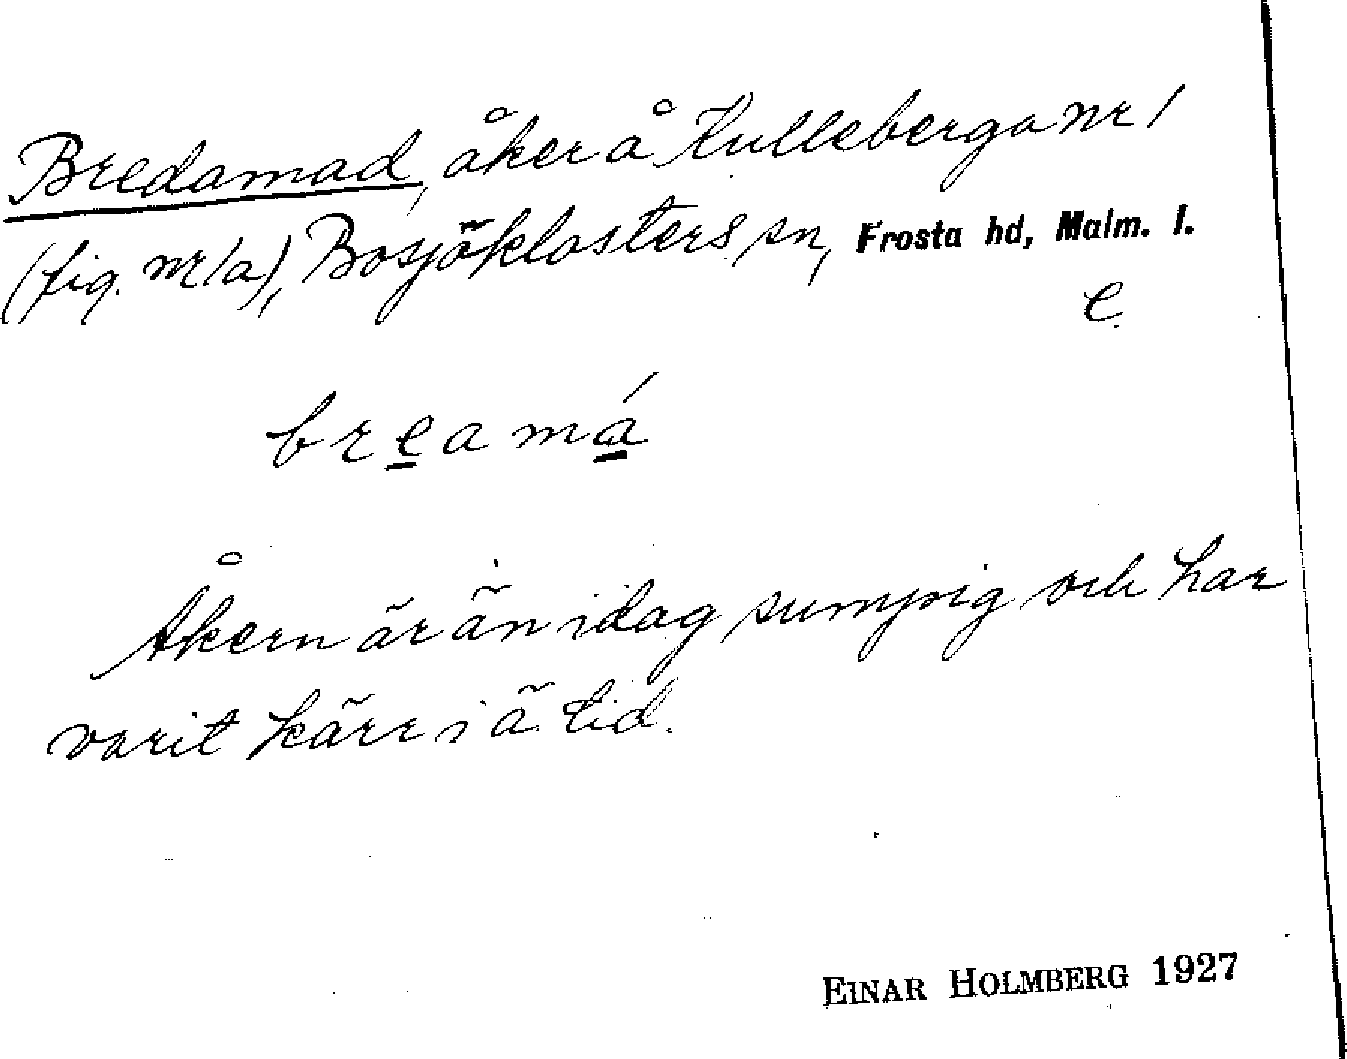 Bredamad, åker å Kulleberga nr 1
(fig. nr 1a), Bosjöklosters sn, Frosta hd, Malm. l.
e.
breamá
Åkern är än idag sumpig och har
varit kärr i ä. tid.
EINAR HOLMBERG 1927